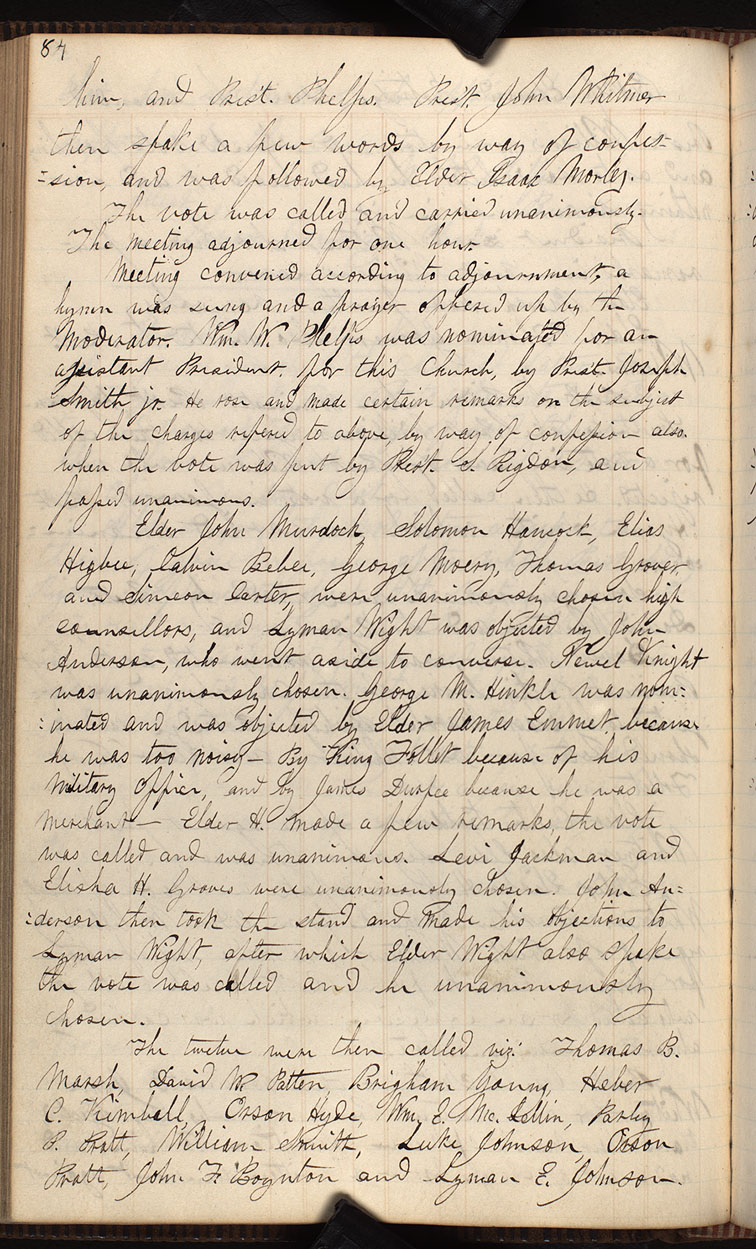 84
him, and Prest. Phelps. Prest. John Whitmer
then spake a few words by way of confes-
=sion, and was followed by Elder Isaac Morley.
The vote was called and carried unanimously.
The meeting adjourned for one hour
Meeting convened according to adjournment, a
hymn was sung and a prayer offered up by the
Moderator. Wm. W. Phelps was nominated for an
assistant President, for this Church, by Prest. Joseph
Smith jr. He rose and made certain remarks on the subject
of the charges refered to above, by way of confession also.
when the vote was put by Prest. S. Rigdon, and
passed unanimous.
Elder John Murdock, Solomon Hancock, Elias
Higbee, Calvin Bebee, George Morey, Thomas Grover
and Simeon Carter, were unanimously chosen high
counsellors, and Lyman Wight was objected by John
Anderson, who went aside to converse. Newel Knight
was unanimously chosen. George M. Hinkle was nom=
=inated and was objected by Elder James Emmet, because
he was too noisy— By King Follet because of his
military office, and by James Durfee because he was a
merchant— Elder H. made a few remarks, the vote
was called and was unanimous. Levi Jackman and
Elisha H. Groves were unanimously chosen. John An=
=derson then took the stand and made his objections to
Lyman Wight, after which Elder Wight also spake
the vote was called and he unanimously
chosen.
The twelve were then called viz: Thomas B.
Marsh, David W. Patten, Brigham Young, Heber
C. Kimball, Orson Hyde, Wm. E. Mc. Lellin, Parley
P. Pratt, William Smith, Luke Johnson, Orson
Pratt, John F. Boynton and Lyman E. Johnson.